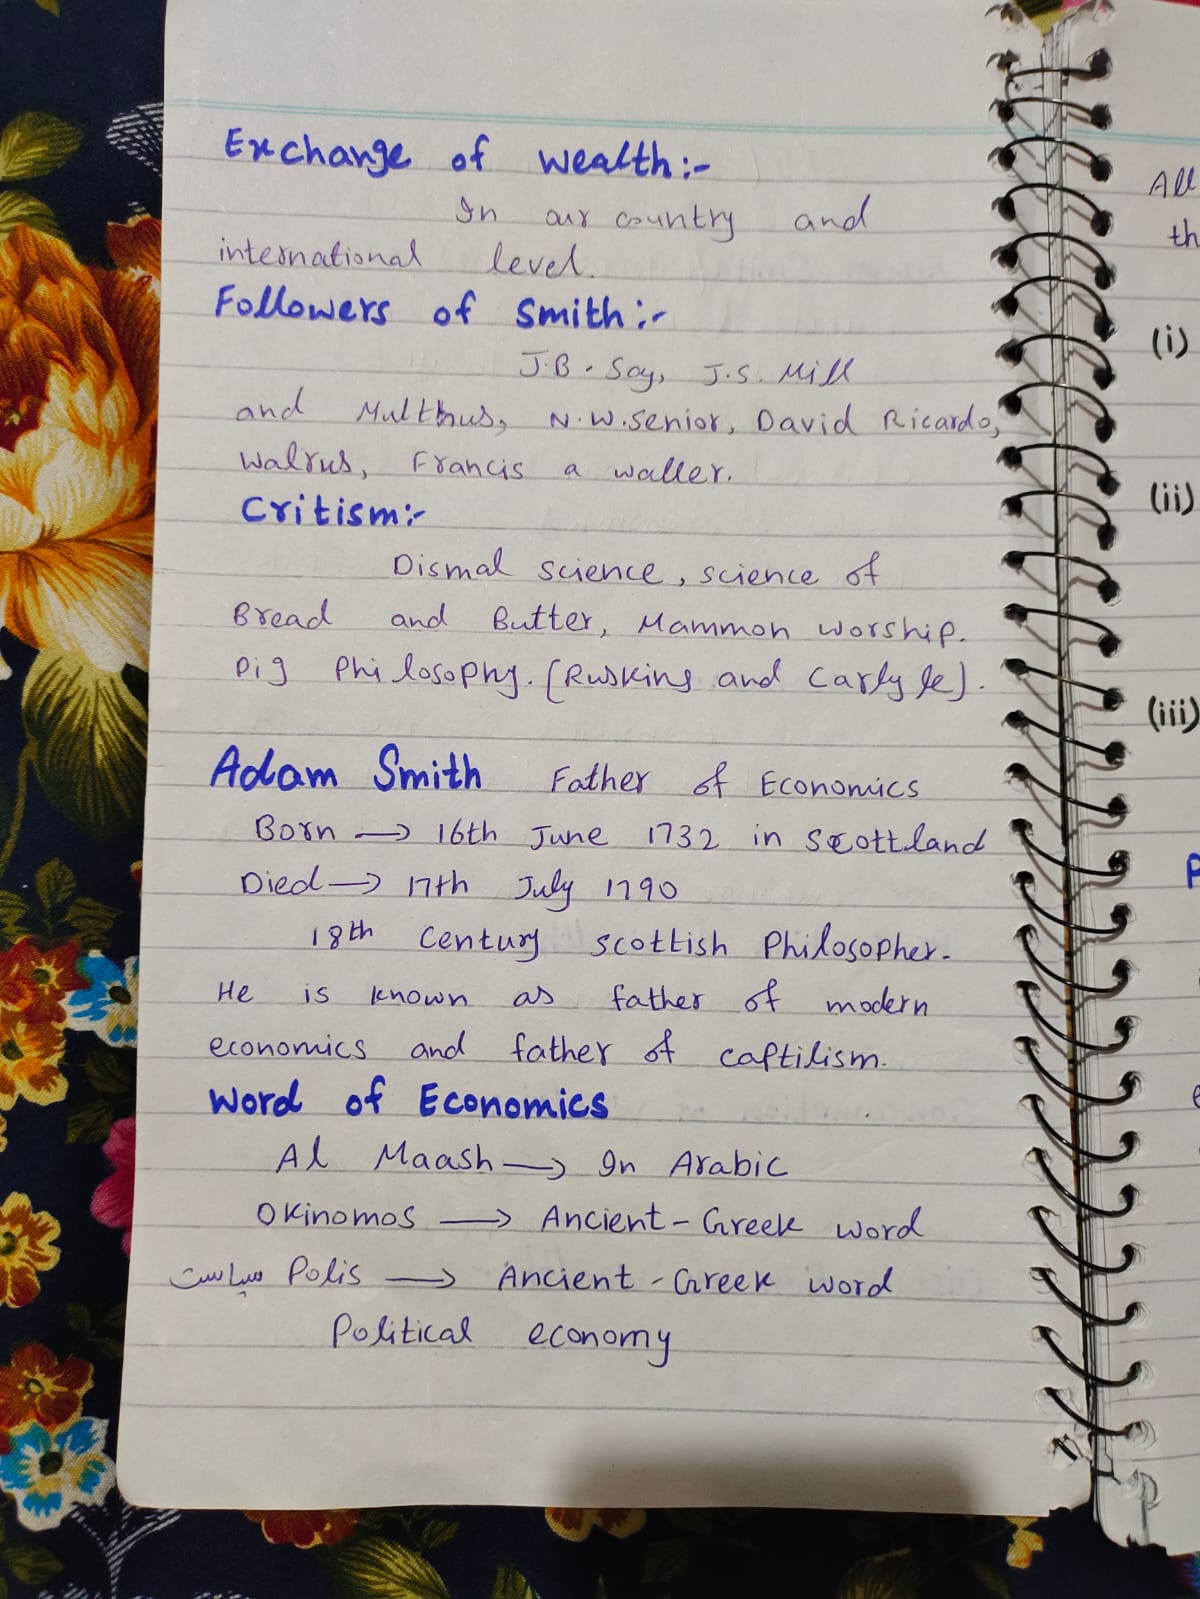 Exchange of wealth:-
In our country and
international level.
Followers of Smith:-
J.B. Say, J.S. Mill
and Multhus, N.W.Senior, David Ricardo,
Walrus, Francis a waller.
Critism:-
Dismal science, science of
Bread and Butter, Mammon worship.
Pig Philosophy. [Ruskins and Carlyle].
Adam Smith Father of Economics
Born → 16th June 1732 in Scottland
Died → 17th July 1790
18th Century Scottish Philosopher.
He is known as father of modern
economics and father of caftilism.
Word of Economics
Al Maash → In Arabic
Okinomos → Ancient-Greek word
سیاست Polis → Ancient-Greek word
Political economy
All
th
(i)
(ii)
(iii)